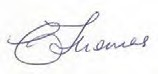 C Thomas